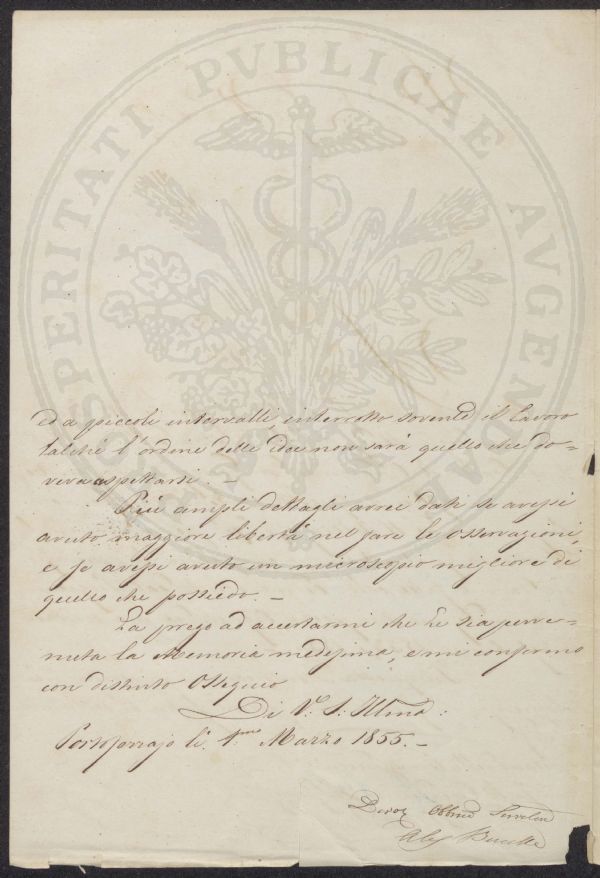 PROSPERITATI PVBLICAE AVGENDAE
ed a piccoli intervalli, interrotto sovente il lavoro
talché l'ordine delle idee non sarà quello che do=
veva aspettarsi. _
Più ampli dettagli avrei dati se avessi
avuto maggiore libertà nel fare le osservazioni,
e se avessi avuto un microscopio migliore di
quello che possiedo. _
La prego ad accertarmi che Le sia perve=
nuta la Memoria medesima, e mi confermo
con distinto Ossequio
Di V: S: Illma:
Portoferrajo li 1mo Marzo 1855. _
Devot Obbmo Servitore